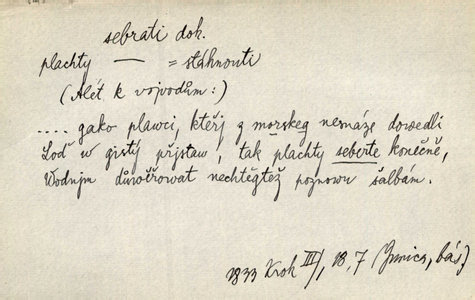 sebrati dok.
plachty — = stáhnouti
(Alét. k vojvodům:)
.... gako plawci, kteřj z morskeg nesnáze dowedli
Loď w gistý přjstaw, tak plachty seberte konečně,
Wodnjm důwěřowat nechtěgtež poznowu šalbám.
1833 Krok III/1, 18, 7 (Jvnica, bás.)